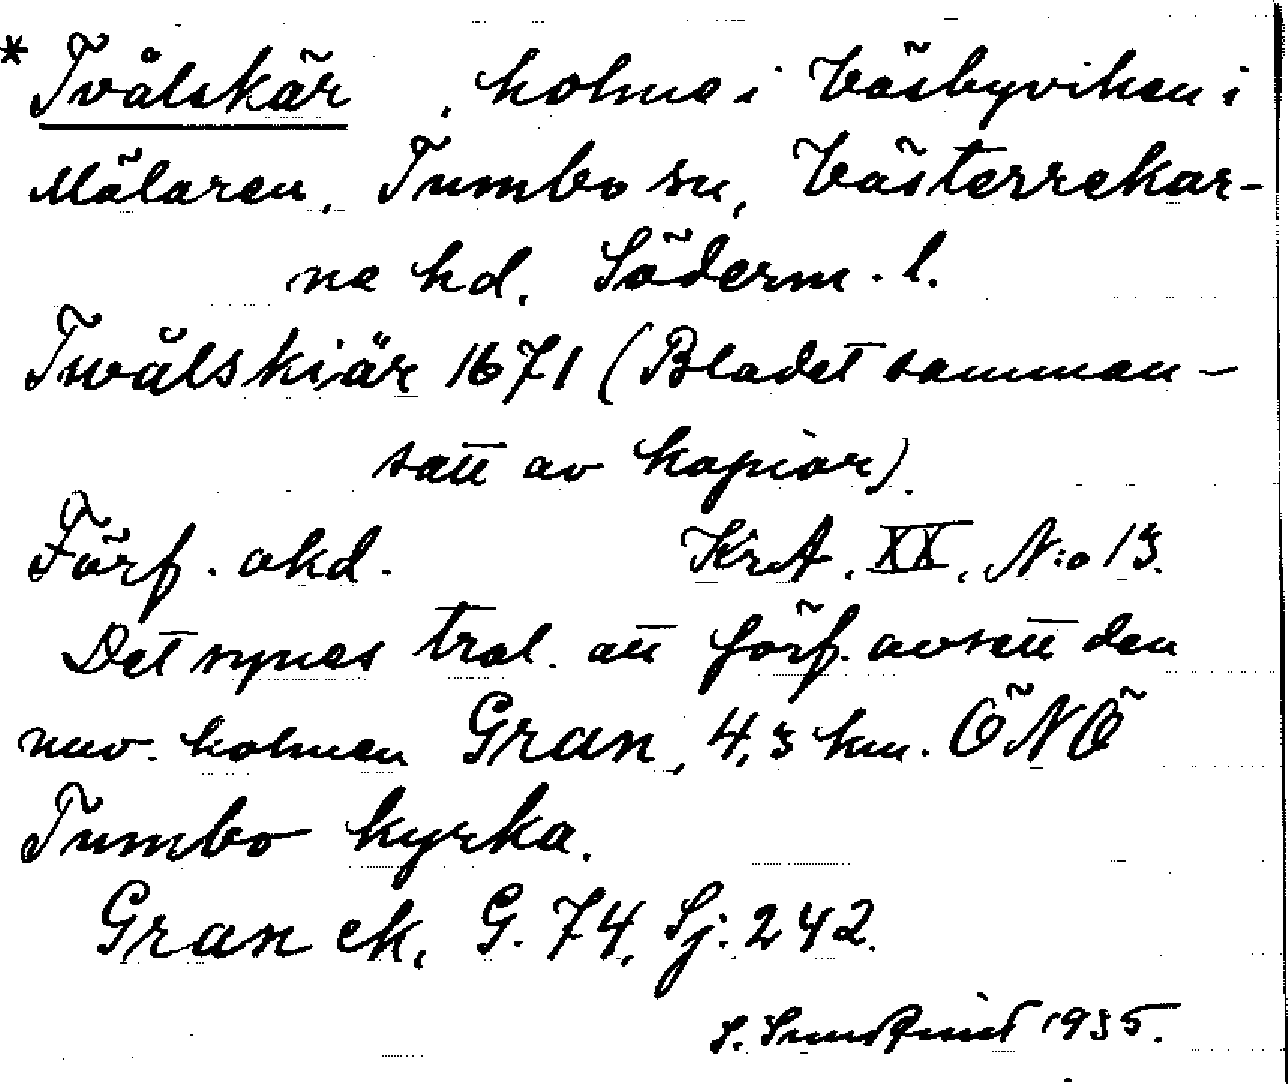 * Tvålskär, holme i Väsbyviken i
Mälaren, Tumbo sn, Västerrekar-
ne hd, Söderm. l.
Twålskiär 1671 (Bladet samman-
satt av kopior).
Förf. okd. KrA, XX, N:o 13.
Det synes trol. att förf. avsett den
nuv. holmen Gran, 4,3 km. ÖNÖ
Tumbo kyrka.
Gran ek, G. 74, Sj. 242.
S. 1935.